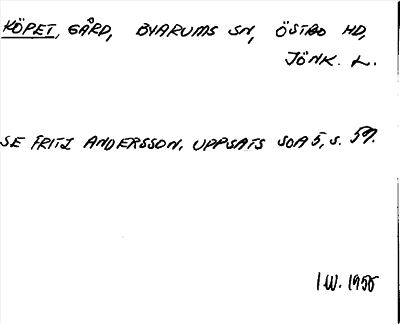 KÖPET, GÅRD, BYARUMS SN, ÖSTBO HD,
JÖNK. L.
SE FRITZ ANDERSSON, UPPSATS SOA 5, S. 57.
I W. 1955